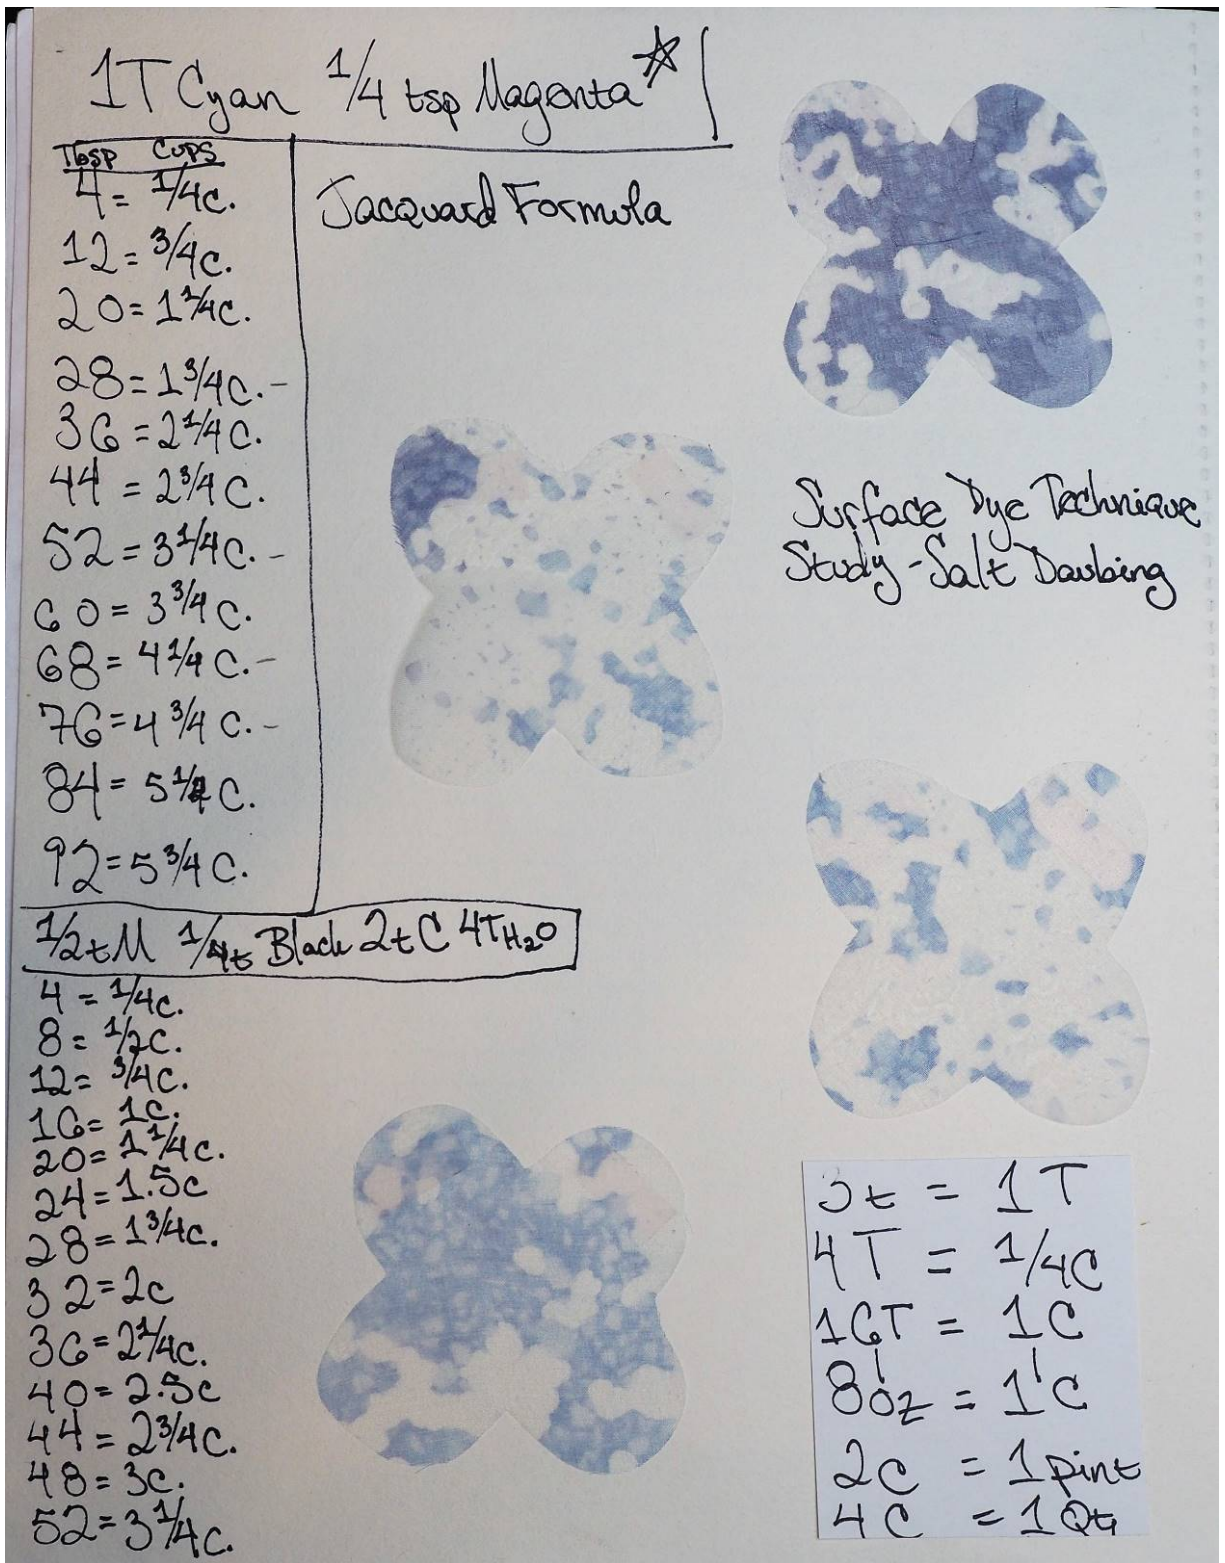 1T Cyan 1/4 tsp Magenta ☆
Tbsp Cups
4 = 1/4c.
12 = 3/4c.
20 = 1 1/4c.
28 = 1 3/4c. -
36 = 2 1/4c.
44 = 2 3/4c.
52 = 3 1/4c. -
60 = 3 3/4c.
68 = 4 1/4c. -
76 = 4 3/4c. -
84 = 5 c.
92 = 5 3/4c.
Jacquard Formula
Surface Dye Technique
Study - Salt Daubing
1/2t M 1/4t Black 2t C 4T H₂O
4 = 1/4c.
8 = 1/2c.
12 = 3/4c.
16 = 1c.
20 = 1 1/4c.
24 = 1.5c
28 = 1 3/4c.
32 = 2c
36 = 2 1/4c.
40 = 2.5c
44 = 2 3/4c.
48 = 3c.
52 = 3 1/4c.
3t = 1T
4T = 1/4C
16T = 1C
8oz = 1C
2c = 1 pint
4C = 1 Qt